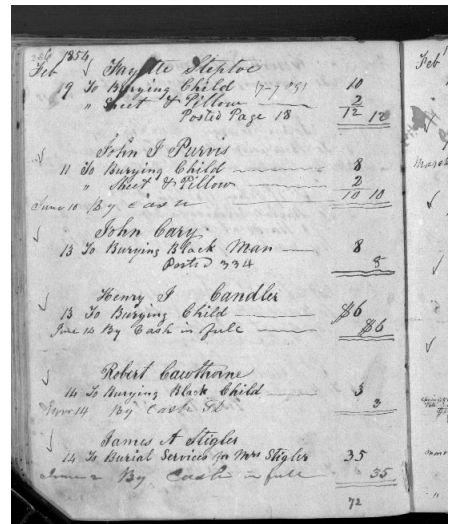 1854
Feb Fayette Steptoe
19 To Burying Child 10
" Sheet & Pillow 2
Posted Page 18 12 12
John J Purvis
11 To Burying Child 8
" Sheet & Pillow 2
June 10 By Cash 10 10
John Cary
13 To Burying Black Man 8
Posted 334 8
Henry J Candler
13 To Burying Child $6
June 14 By Cash in full $6
Robert Cawthorne
14 To Burying Black Child 3
Novr 14 By Cash 3
James A Stigler
14 To Burial Services for Mrs Stigler 35
June 2 By Cash in full 35
72
Feb
March